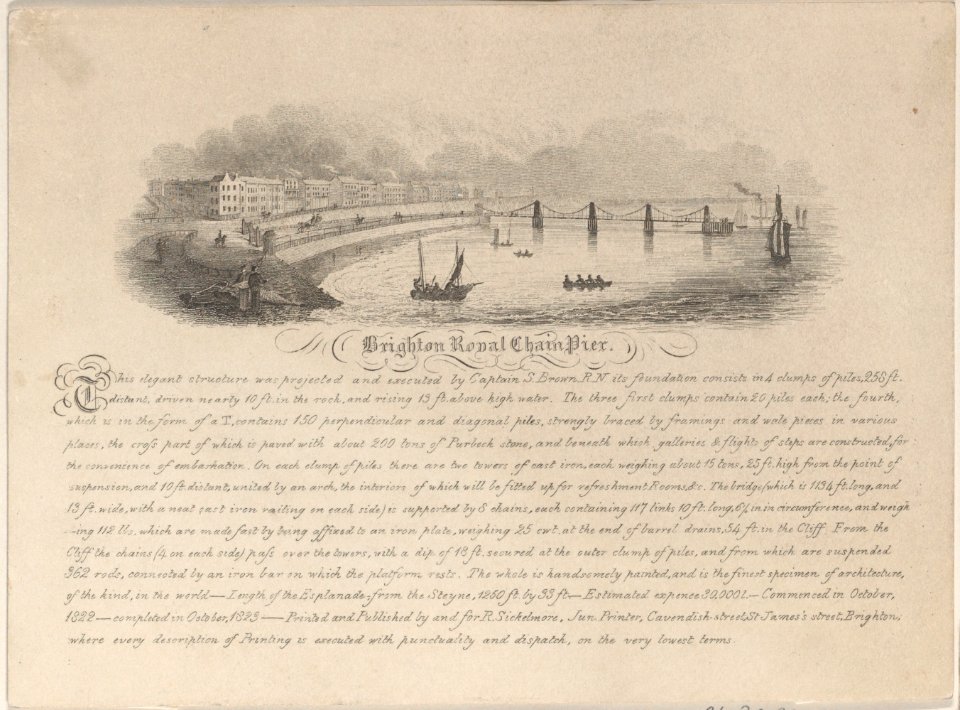 Brighton Royal Chain Pier.
This elegant structure was projected and executed by Captain S. Brown R.N. its foundation consists in 4 clumps of piles, 258 ft.
distant, driven nearly 10 ft. in the rock, and rising 13 ft. above high water. The three first clumps contain 20 piles each, the fourth,
which is in the form of a T, contains 150 perpendicular and diagonal piles, strongly braced by framings and wale pieces in various
places, the cross part of which is paved with about 200 tons of Purbeck stone, and beneath which galleries & flights of steps are constructed, for
the convenience of embarkation. On each clump of piles there are two towers of cast iron, each weighing about 15 tons, 25 ft. high from the point of
suspension, and 10 ft. distant, united by an arch, the interiors of which will be fitted up for refreshment Rooms, &c. The bridge (which is 1134 ft. long, and
13 ft. wide, with a neat cast iron railing on each side) is supported by 8 chains, each containing 117 links 10 ft. long, 6¼ in in circumference, and weigh
-ing 112 lbs. which are made fast by being affixed to an iron plate, weighing 25 cwt. at the end of barrel drains, 54 ft. in the Cliff. From the
Cliff the chains (4 on each side) pass over the towers, with a dip of 18 ft. secured at the outer clump of piles, and from which are suspended
362 rods, connected by an iron bar on which the platform rests. The whole is handsomely painted, and is the finest specimen of architecture,
of the kind, in the world — Length of the Esplanade, from the Steyne, 1260 ft. by 33 ft — Estimated expence 30,000l. — Commenced in October,
1822 — completed in October, 1823 — Printed and Published by and for R. Sickelmore, Jun. Printer, Cavendish street, St James's street, Brighton,
where every description of Printing is executed with punctuality and dispatch, on the very lowest terms.